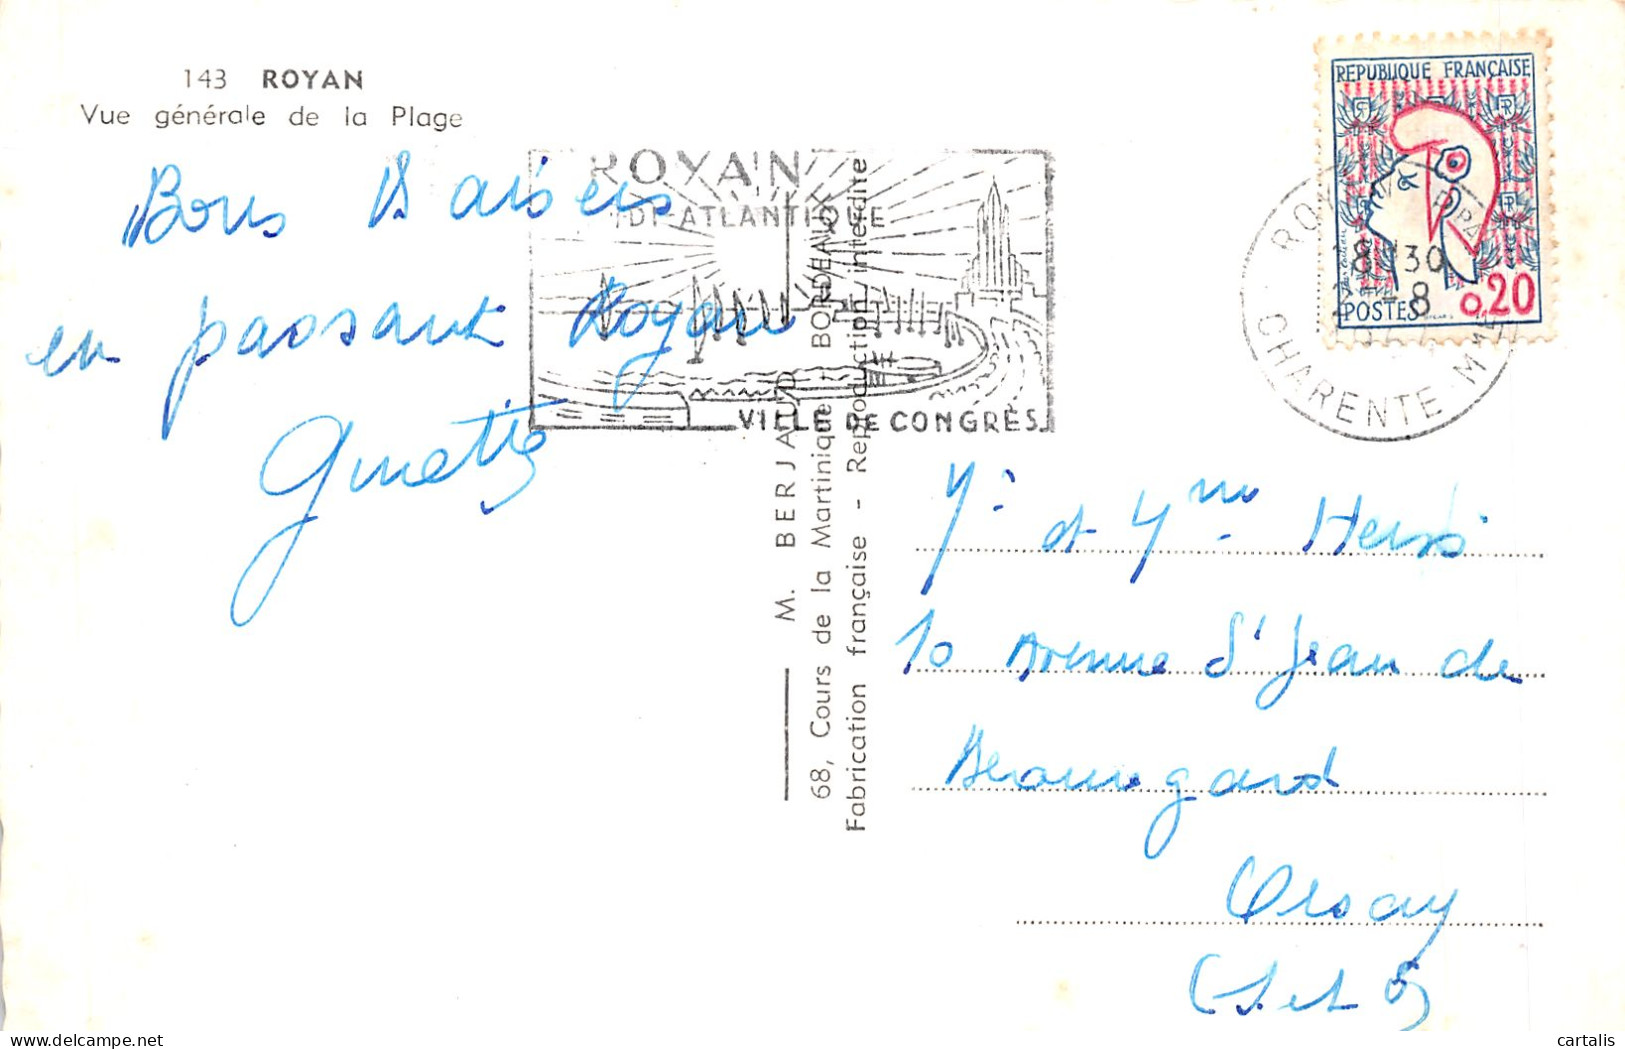 143 ROYAN
Vue générale de la Plage
Bons Baisers
en passant Royan
Ginette
ROYAN
VILLE DE CONGRÈS
M. BERJAUD
68, Cours de la Martinique - BORDEAUX
Fabrication française - Reproduction interdite
REPUBLIQUE FRANÇAISE
POSTES 0,20
8 H 30
-8
CHARENTE-MME
Mr et Mme
10 Avenue St Jean de
Beauregard
Orsay
(S. et O)
cartalis